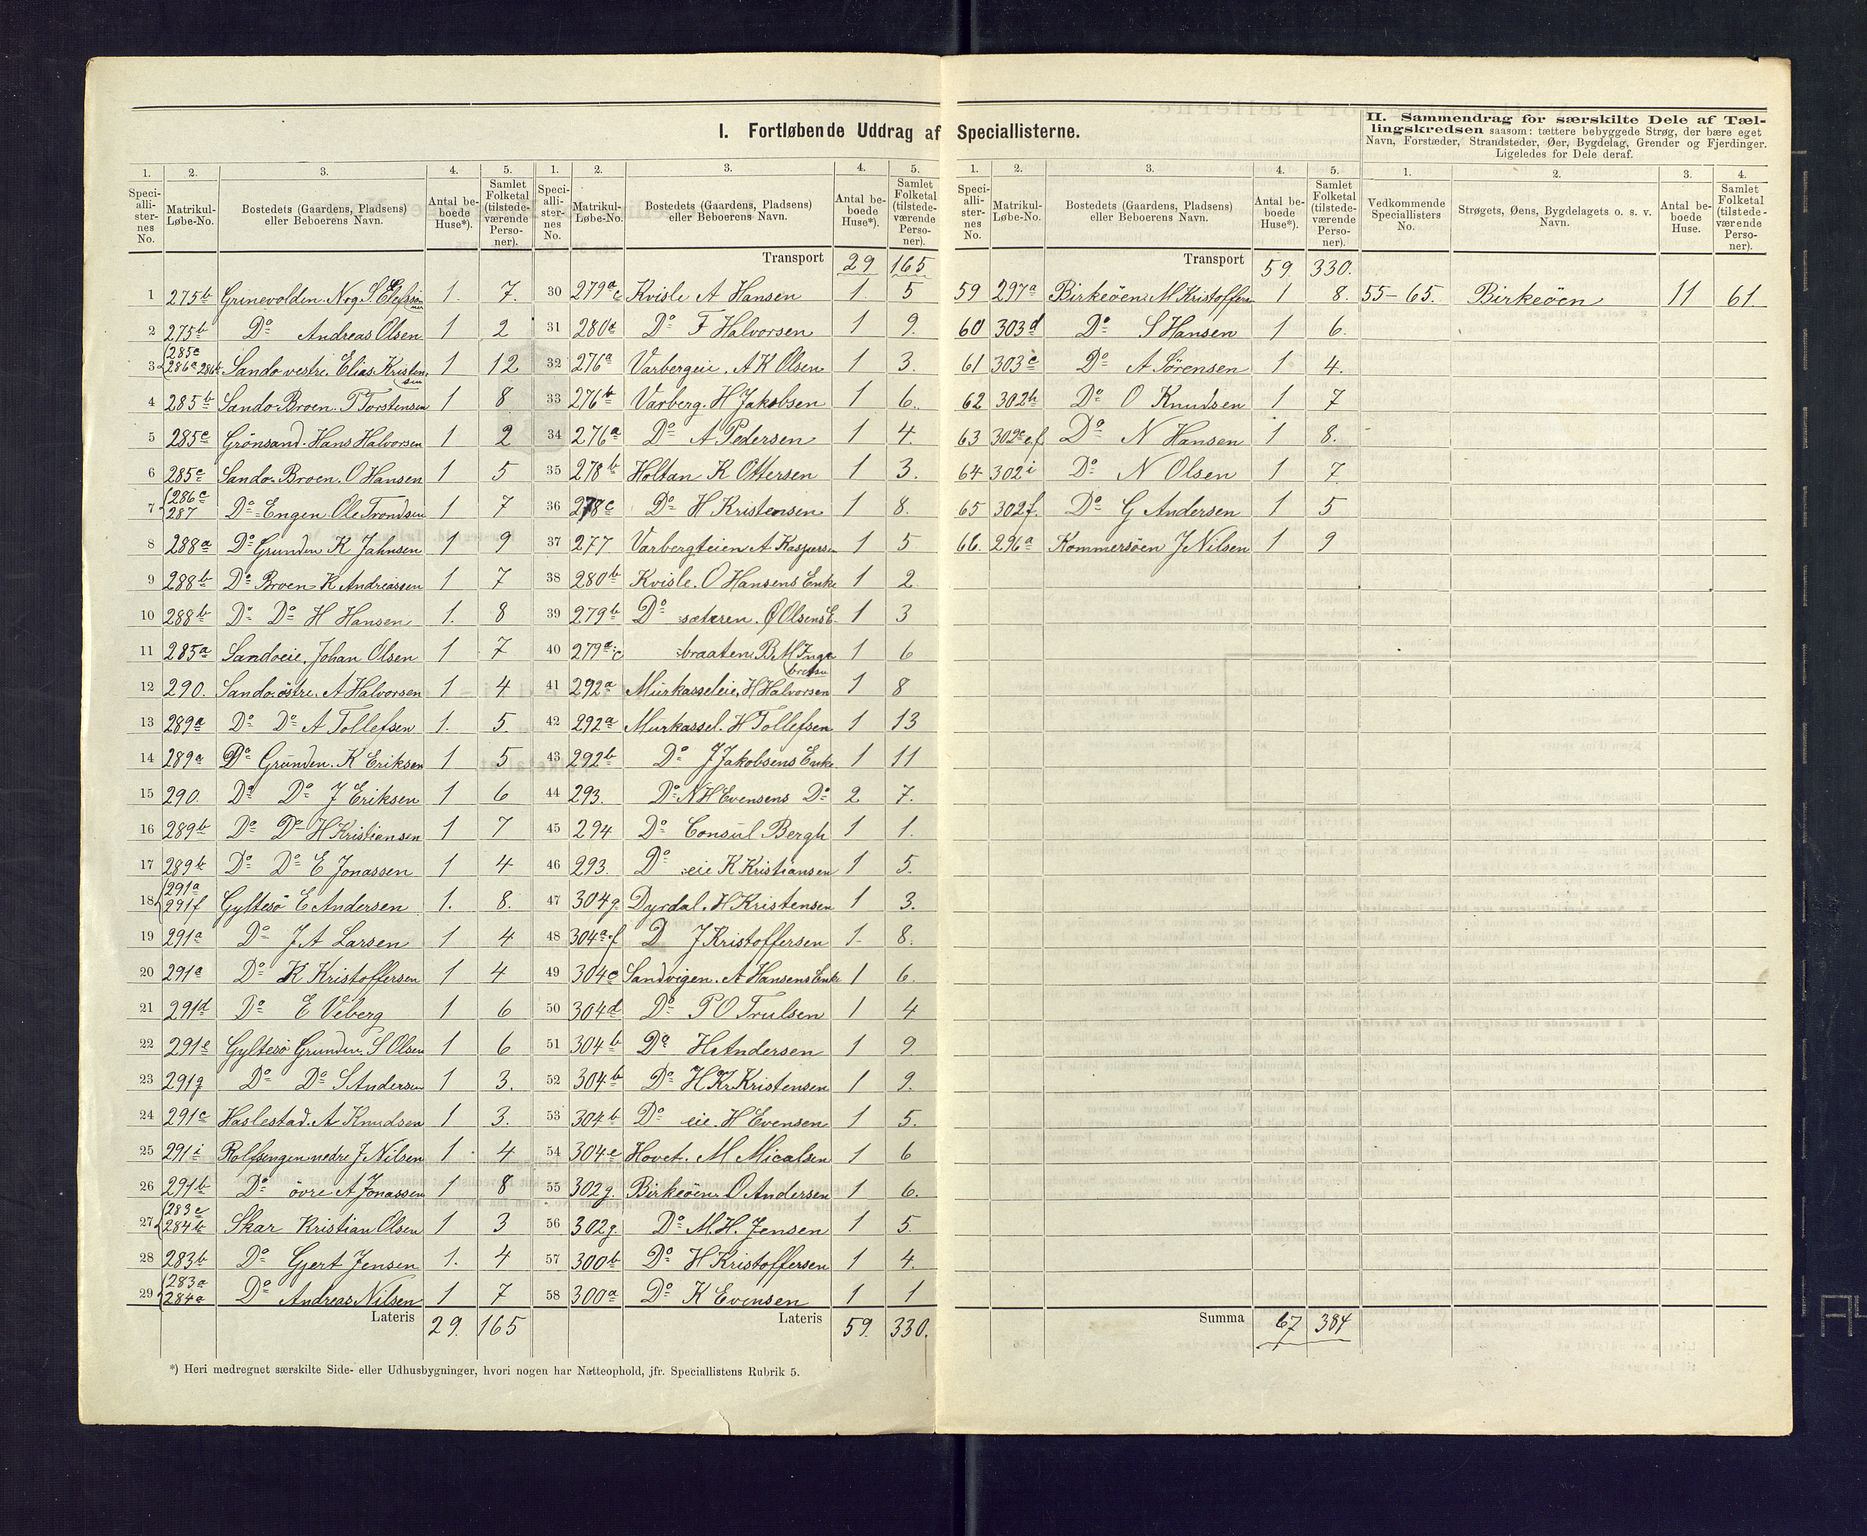 I. Fortløbende Uddrag af Speciallisterne.
1. 2. 3. 4. 5.
Speciallisternes No. Matrikul-Løbe-No. Bostedets (Gaardens, Pladsens) eller Beboerens Navn. Antal beboede Huse*). Samlet Folketal (tilstedeværende Personer).
1 275b Grinevolden N og S 1. 7.
2 275b Do Andreas Olsen 1 2
3 285c 286a 286b Sando vestre. Elias Kristensen 1 12
4 285b Sando-Broen. T Torstensen 1 8
5 285c Grönsand. Hans Halvorsen 1 2
6 285c Sando-Broen. O Hansen 1 5
7 286c 287 Do-Engen Ole Trondsen 1 7
8 288a Do Grunden K Jahnsen 1 9
9 288b Do Broen K Andreassen 1 7
10 288b Do Do H Hansen 1. 8
11 285a Sandoeie. Johan Olsen 1 7
12 290. Sando östre. A Halvorsen 1 4
13 289a Do Do A Tollefsen 1. 5.
14 289a Do Grunden. K Eriksen 1 5
15 290. Do Do J Eriksen 1 6
16 289b Do Do H Kristiansen 1 7
17 289b Do Do E Jonassen 1 4
18 291a 291f Gyltesö E Andersen 1. 8.
19 291a Do J A Larsen 1 4
20 291a Do K Kristoffersen 1 4
21 291d Do E Veberg 1 6
22 291e Gyltesö Grunden. S Olsen 1 6
23 291g Do Do S Andersen 1 3.
24 291c Haslestad. A Knudsen 1 3.
25 291i Rolfsengen nedre J Nilsen 1. 4
26 291b Do övre A Jonassen 1 8
27 283c 284b Skar Kristian Olsen 1 3
28 283b Do Gjert Jensen 1. 4
29 283a 284a Do Andreas Nilsen 1 7
Lateris 29. 165
1. 2. 3. 4. 5.
Speciallisternes No. Matrikul-Løbe-No. Bostedets (Gaardens, Pladsens) eller Beboerens Navn. Antal beboede Huse*). Samlet Folketal (tilstedeværende Personer).
Transport 29 165
30 279a c Kvisle A Hansen 1. 5
31 280c Do F Halvorsen 1 9.
32 276a Varbergeie. A K Olsen 1 3.
33 276b Varberg. H Jakobsen 1 6.
34 276a Do A. Pedersen 1 4.
35 278b Holtan K Ottersen 1 3.
36 278c Do H Kristensen 1 8.
37 277 Varbergteien A Kaspersen 1 5
38 280b Kvisle. O Hansens Enke 1 2
39 279b Do sæteren. Ø Olsens E. 1 3
40 279a c braaten B M Ingebretsn 1 6
41 292a Murkasseleie. H Halvorsen 1 8
42 292a Murkassel. H Tollefsen 1 13
43 292b Do J Jakobsens Enke 1 11
44 293. Do N H Evensens Do 2 7.
45 294 Do Consul Bergh 1 1.
46 293. Do eie K Kristiansen 1 5.
47 304g. Dyrdal. H Kristensen 1 3.
48 304a f D J Kristoffersen 1- 8.
49 304c Sandvigen. A Hansens Enke 1 6.
50 304d Do P O Trulsen 1 4
51 304b Do H Andersen 1 9
52 304b Do H Kr. Kristensen 1 9.
53 304b Do eie. H Evensen 1 5.
54 304e Hovet. M Micalsen 1 6
55 302g. Birkeöen. O Andersen 1 6.
56 302g. Do M. H. Jensen 1 5.
57 300b Do H Kristoffersen 1 4.
58 300a Do K Evensen 1 1
Lateris 59. 330.
*) Heri medregnet særskilte Side- eller Udhusbygninger, hvori nogen har Natteophold, jfr. Speciallistens Rubrik 5.
1. 2. 3. 4. 5.
Speciallisternes No. Matrikul-Løbe-No. Bostedets (Gaardens, Pladsens) eller Beboerens Navn. Antal beboede Huse*). Samlet Folketal (tilstedeværende Personer).
Transport 59. 330.
59 297a Birkeöen. M Kristoffersen 1 8.
60 303d Do S Hansen 1 6.
61 303c Do A Sørensen 1 4.
62 302h Do O Knudsen 1 7
63 302c.f. Do N Hansen 1 8.
64 302i Do N Olsen 1 7.
65 302f. Do G Andersen 1 5
66. 296a Kommersöen J Nilsen 1 9
Summa 67 384
II. Sammendrag for særskilte Dele af Tællingskredsen saasom: tættere bebyggede Strøg, der bære eget Navn, Forstæder, Strandsteder, Øer, Bygdelag, Grender og Fjerdinger. Ligeledes for Dele deraf.
1. 2. 3. 4.
Vedkommende Speciallisters No. Strøgets, Øens, Bygdelagets o. s. v. Navn. Antal beboede Huse. Samlet Folketal (tilstedeværende Personer).
55-65. Birkeöen 11 61.